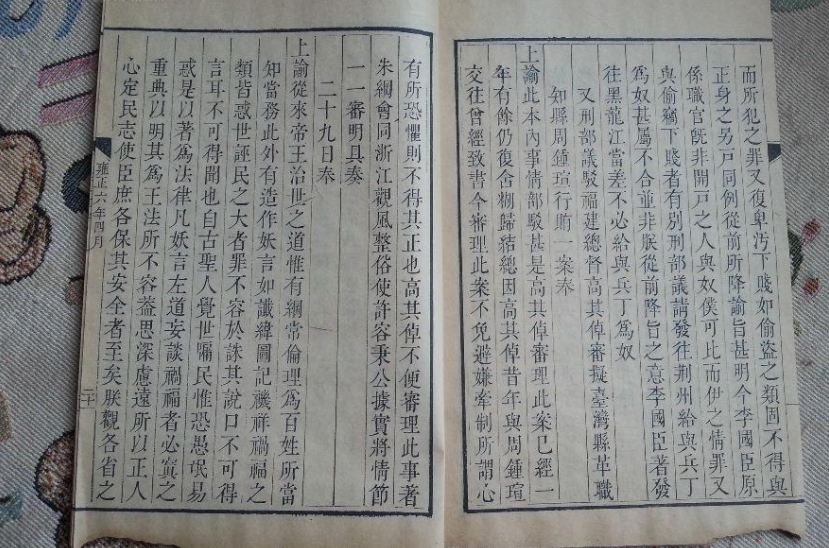 而所犯之罪又復卑污下賤如偷盜之類固不得與
正身之另戸同例從前所降諭旨甚明今李國臣原
係職官旣非開戸之人與奴僕可比而伊之情罪又
與偷竊下賤者有別刑部議請發往荆州給與兵丁
爲奴甚屬不合並非朕從前降旨之意李國臣著發
往黑龍江當差不必給與兵丁爲奴
又刑部議駁福建總督高其倬審擬臺灣縣革職
知縣周鍾瑄行賄一案奉
上諭此本內事情部駁甚是高其倬審理此案已經一
年有餘仍復含糊歸結總因高其倬昔年與周鍾瑄
交往曾經致書今審理此案不免避嫌牽制所謂心
有所恐懼則不得其正也高其倬不便審理此事著
朱綱會同浙江觀風整俗使許容秉公據實將情節
一一審明具奏
二十九日奉
上諭從來帝王治世之道惟有綱常倫理爲百姓所當
知當務此外有造作妖言如讖緯圖記禨祥禍福之
類皆惑世誣民之大者罪不容於誅其說口不可得
言耳不可得聞也自古聖人覺世牖民惟恐愚氓易
惑是以著爲法律凡妖言左道妄談禍福者必寘之
重典以明其爲王法所不容蓋思深慮遠所以正人
心定民志使臣庶各保其安全者至矣朕觀各省之
雍正六年四月
二十